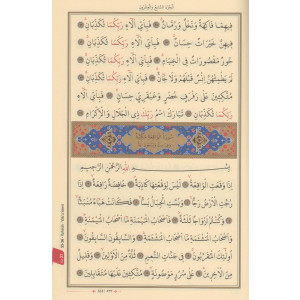 فِيهِمَا فَاكِهَةٌ وَنَخْلٌ وَرُمَّانٌ ۞ فَبِأَيِّ آلَاءِ رَبِّكُمَا تُكَذِّبَانِ ۞
فِيهِنَّ خَيْرَاتٌ حِسَانٌ ۞ فَبِأَيِّ آلَاءِ رَبِّكُمَا تُكَذِّبَانِ ۞
حُورٌ مَقْصُورَاتٌ فِي الْخِيَامِ ۞ فَبِأَيِّ آلَاءِ رَبِّكُمَا تُكَذِّبَانِ ۞
لَمْ يَطْمِثْهُنَّ إِنْسٌ قَبْلَهُمْ وَلَا جَانٌّ ۞ فَبِأَيِّ آلَاءِ رَبِّكُمَا تُكَذِّبَانِ ۞
مُتَّكِئِينَ عَلَى رَفْرَفٍ خُضْرٍ وَعَبْقَرِيٍّ حِسَانٍ ۞ فَبِأَيِّ آلَاءِ
رَبِّكُمَا تُكَذِّبَانِ ۞ تَبَارَكَ اسْمُ رَبِّكَ ذِي الْجَلَالِ وَالْإِكْرَامِ ۞
بِسْمِ اللهِ الرَّحْمٰنِ الرَّحِيمِ
إِذَا وَقَعَتِ الْوَاقِعَةُ ۞ لَيْسَ لِوَقْعَتِهَا كَاذِبَةٌ ۞ خَافِضَةٌ رَافِعَةٌ ۞
إِذَا رُجَّتِ الْأَرْضُ رَجًّا ۞ وَبُسَّتِ الْجِبَالُ بَسًّا ۞ فَكَانَتْ هَبَاءً مُنْبَثًّا ۞
وَكُنْتُمْ أَزْوَاجًا ثَلَاثَةً ۞ فَأَصْحَابُ الْمَيْمَنَةِ مَا أَصْحَابُ الْمَيْمَنَةِ ۞
وَأَصْحَابُ الْمَشْأَمَةِ مَا أَصْحَابُ الْمَشْأَمَةِ ۞ وَالسَّابِقُونَ السَّابِقُونَ ۞
أُولٰئِكَ الْمُقَرَّبُونَ ۞ فِي جَنَّاتِ النَّعِيمِ ۞ ثُلَّةٌ مِنَ الْأَوَّلِينَ ۞ وَقَلِيلٌ
مِنَ الْآخِرِينَ ۞ عَلَى سُرُرٍ مَوْضُونَةٍ ۞ مُتَّكِئِينَ عَلَيْهَا مُتَقَابِلِينَ ۞